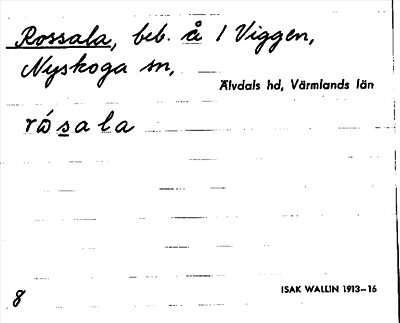 Rossala, beb. å 1 Viggen,
Nyskoga sn,
Älvdals hd, Värmlands län
rósala
8
ISAK WALLIN 1913–16